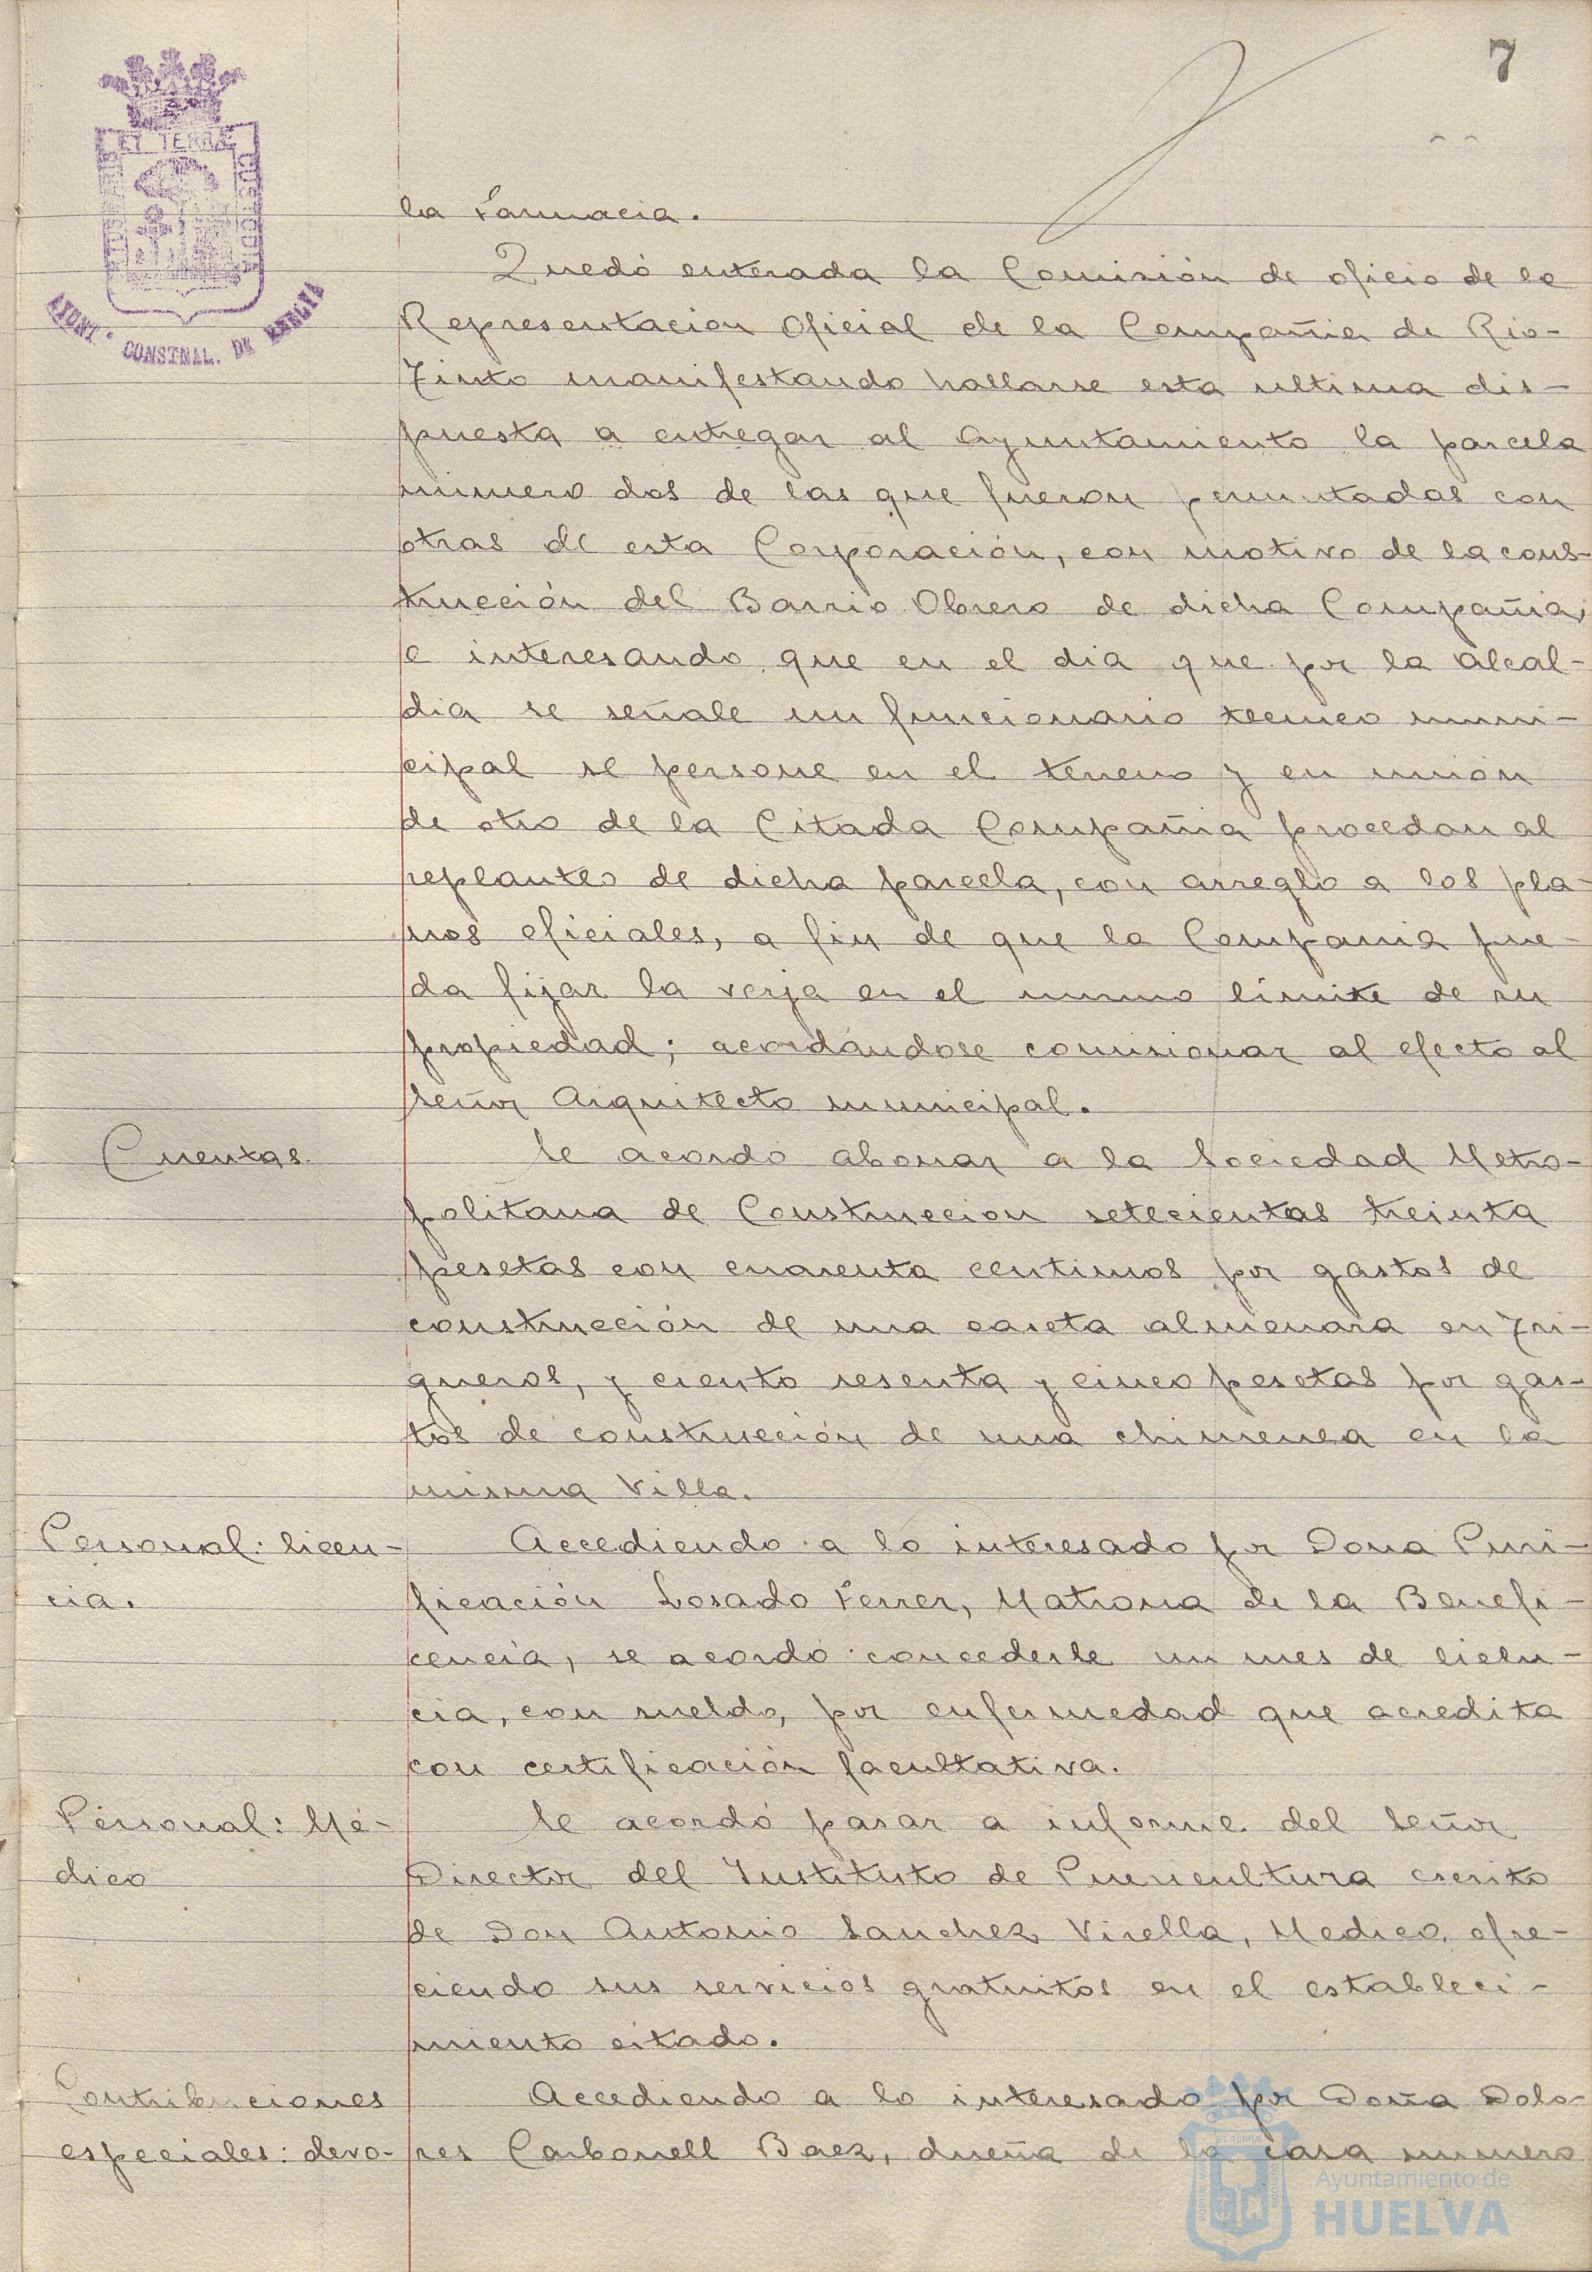 7
ET TERRÆ
PORTUS MARIS
CUSTODIA
AYUNT. CONSTNAL. DE HUELVA
la Farmacia.
Quedó enterada la Comisión de oficio de la
Representacion Oficial de la Compañia de Rio-
Tinto manifestando hallarse esta ultima dis-
puesta a entregar al Ayuntamiento la parcela
numero dos de las que fueron permutadas con
otras de esta Corporación, con motivo de la cons-
trucción del Barrio Obrero de dicha Compañia,
e interesando que en el dia que por la Alcal-
dia se señale un funcionario tecnico muni-
cipal se persone en el terreno y en unión
de otro de la Citada Compañia procedan al
replanteo de dicha parcela, con arreglo a los pla-
nos oficiales, a fin de que la Compania pue-
da fijar la verja en el mismo límite de su
propiedad; acordándose comisionar al efecto al
Señor Arquitecto municipal.
Cuentas.
Se acordó abonar a la Sociedad Metro-
politana de Construccion setecientas treinta
pesetas con cuarenta centimos por gastos de
construcción de una caseta almenara en Tri-
gueros, y ciento sesenta y cinco pesetas por gas-
tos de construcción de una chimenea en la
misma Villa.
Personal: licen-
cia.
Accediendo a lo interesado por Dona Puri-
ficación Losado Ferrer, Matrona de la Benefi-
cencia, se acordó concederle un mes de licen-
cia, con sueldo, por enfermedad que acredita
con certificación facultativa.
Personal: Mé-
dico
Se acordó pasar a informe del Señor
Director del Instituto de Puericultura escrito
de Don Antonio Sanchez Virella, Medico, ofre-
ciendo sus servicios gratuitos en el estableci-
miento citado.
Contribuciones
especiales: devo-
Accediendo a lo interesado por Doña Dolo-
res Carbonell Baez, dueña de la casa numero
Ayuntamiento de
HUELVA